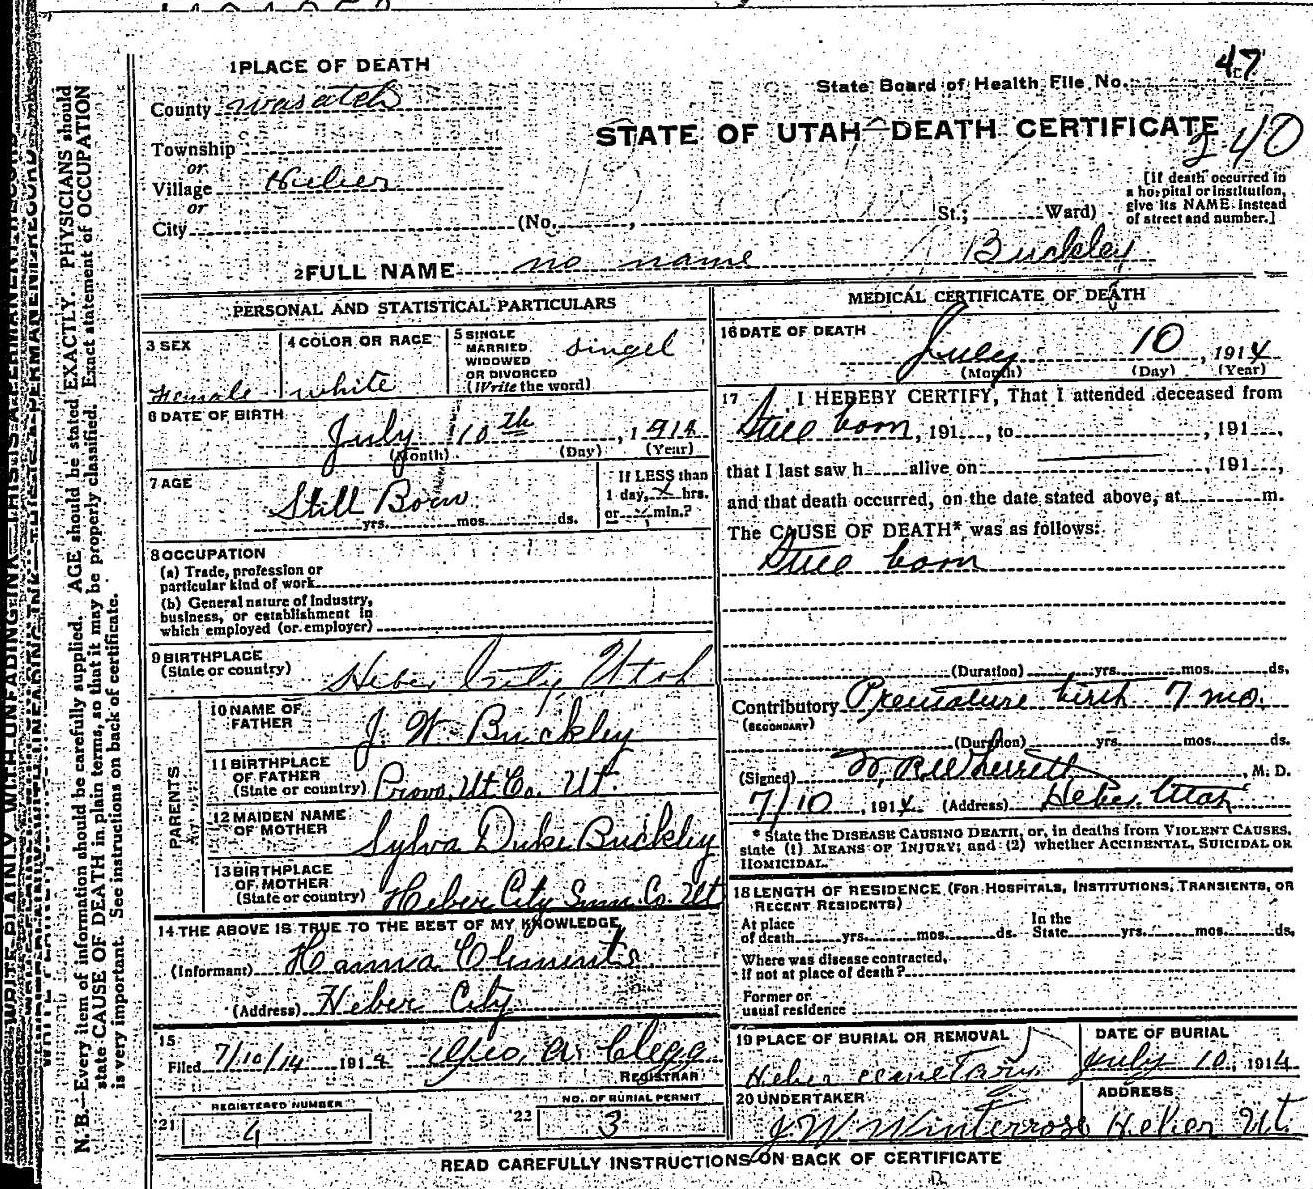 1 PLACE OF DEATH
County Wasatch
Township
or
Village Heber
or
City (No. , St.; Ward)
State Board of Health File No. 47
STATE OF UTAH—DEATH CERTIFICATE
240
[If death occurred in
a hospital or institution,
give its NAME instead
of street and number.]
2 FULL NAME no name Buckley
PERSONAL AND STATISTICAL PARTICULARS
3 SEX
Female
4 COLOR OR RACE
white
5 SINGLE
MARRIED
WIDOWED
OR DIVORCED
(Write the word)
Singel
6 DATE OF BIRTH
July 10th, 1914
(Month) (Day) (Year)
7 AGE
Still Born
yrs. mos. ds.
If LESS than
1 day, hrs.
or min.?
8 OCCUPATION
(a) Trade, profession or
particular kind of work
(b) General nature of industry,
business, or establishment in
which employed (or employer)
9 BIRTHPLACE
(State or country) Heber City, Utah
PARENTS
10 NAME OF
FATHER J. W. Buckley
11 BIRTHPLACE
OF FATHER
(State or country) Provo, Ut. Co. Ut.
12 MAIDEN NAME
OF MOTHER Sylva Duke Buckley
13 BIRTHPLACE
OF MOTHER
(State or country) Heber City Sum. Co. Ut
14 THE ABOVE IS TRUE TO THE BEST OF MY KNOWLEDGE
(Informant) Hanna Clements
(Address) Heber City
15
Filed 7/10/14 1914 Geo. A. Clegg
REGISTRAR
REGISTERED NUMBER
21 4
NO. OF BURIAL PERMIT
22 3
MEDICAL CERTIFICATE OF DEATH
16 DATE OF DEATH
July 10, 1914
(Month) (Day) (Year)
17 I HEREBY CERTIFY, That I attended deceased from
Still born, 191 , to , 191 ,
that I last saw h alive on , 191 ,
and that death occurred, on the date stated above, at m.
The CAUSE OF DEATH* was as follows:
Still born
(Duration) yrs. mos. ds.
Contributory Premature birth 7 mo.
(SECONDARY)
(Duration) yrs. mos. ds.
(Signed) W. R. Wherritt, M. D.
7/10, 1914 (Address) Heber Utah
* State the DISEASE CAUSING DEATH, or, in deaths from VIOLENT CAUSES,
state (1) MEANS OF INJURY; and (2) whether ACCIDENTAL, SUICIDAL OR
HOMICIDAL.
18 LENGTH OF RESIDENCE (FOR HOSPITALS, INSTITUTIONS, TRANSIENTS, OR
RECENT RESIDENTS)
At place
of death yrs. mos. ds.
In the
State yrs. mos. ds.
Where was disease contracted,
if not at place of death?
Former or
usual residence
19 PLACE OF BURIAL OR REMOVAL
Heber cemetary
DATE OF BURIAL
July 10, 1914
20 UNDERTAKER
J. W. Winterrose
ADDRESS
Heber Ut.
READ CAREFULLY INSTRUCTIONS ON BACK OF CERTIFICATE
N. B.—Every item of information should be carefully supplied. AGE should be stated EXACTLY. PHYSICIANS should
state CAUSE OF DEATH in plain terms, so that it may be properly classified. Exact statement of OCCUPATION
is very important. See instructions on back of certificate.